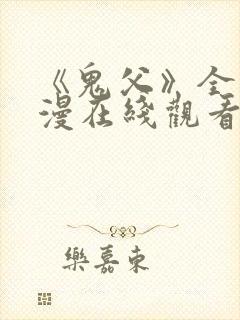 《鬼父》全
漫在綫觀看
樂嘉東